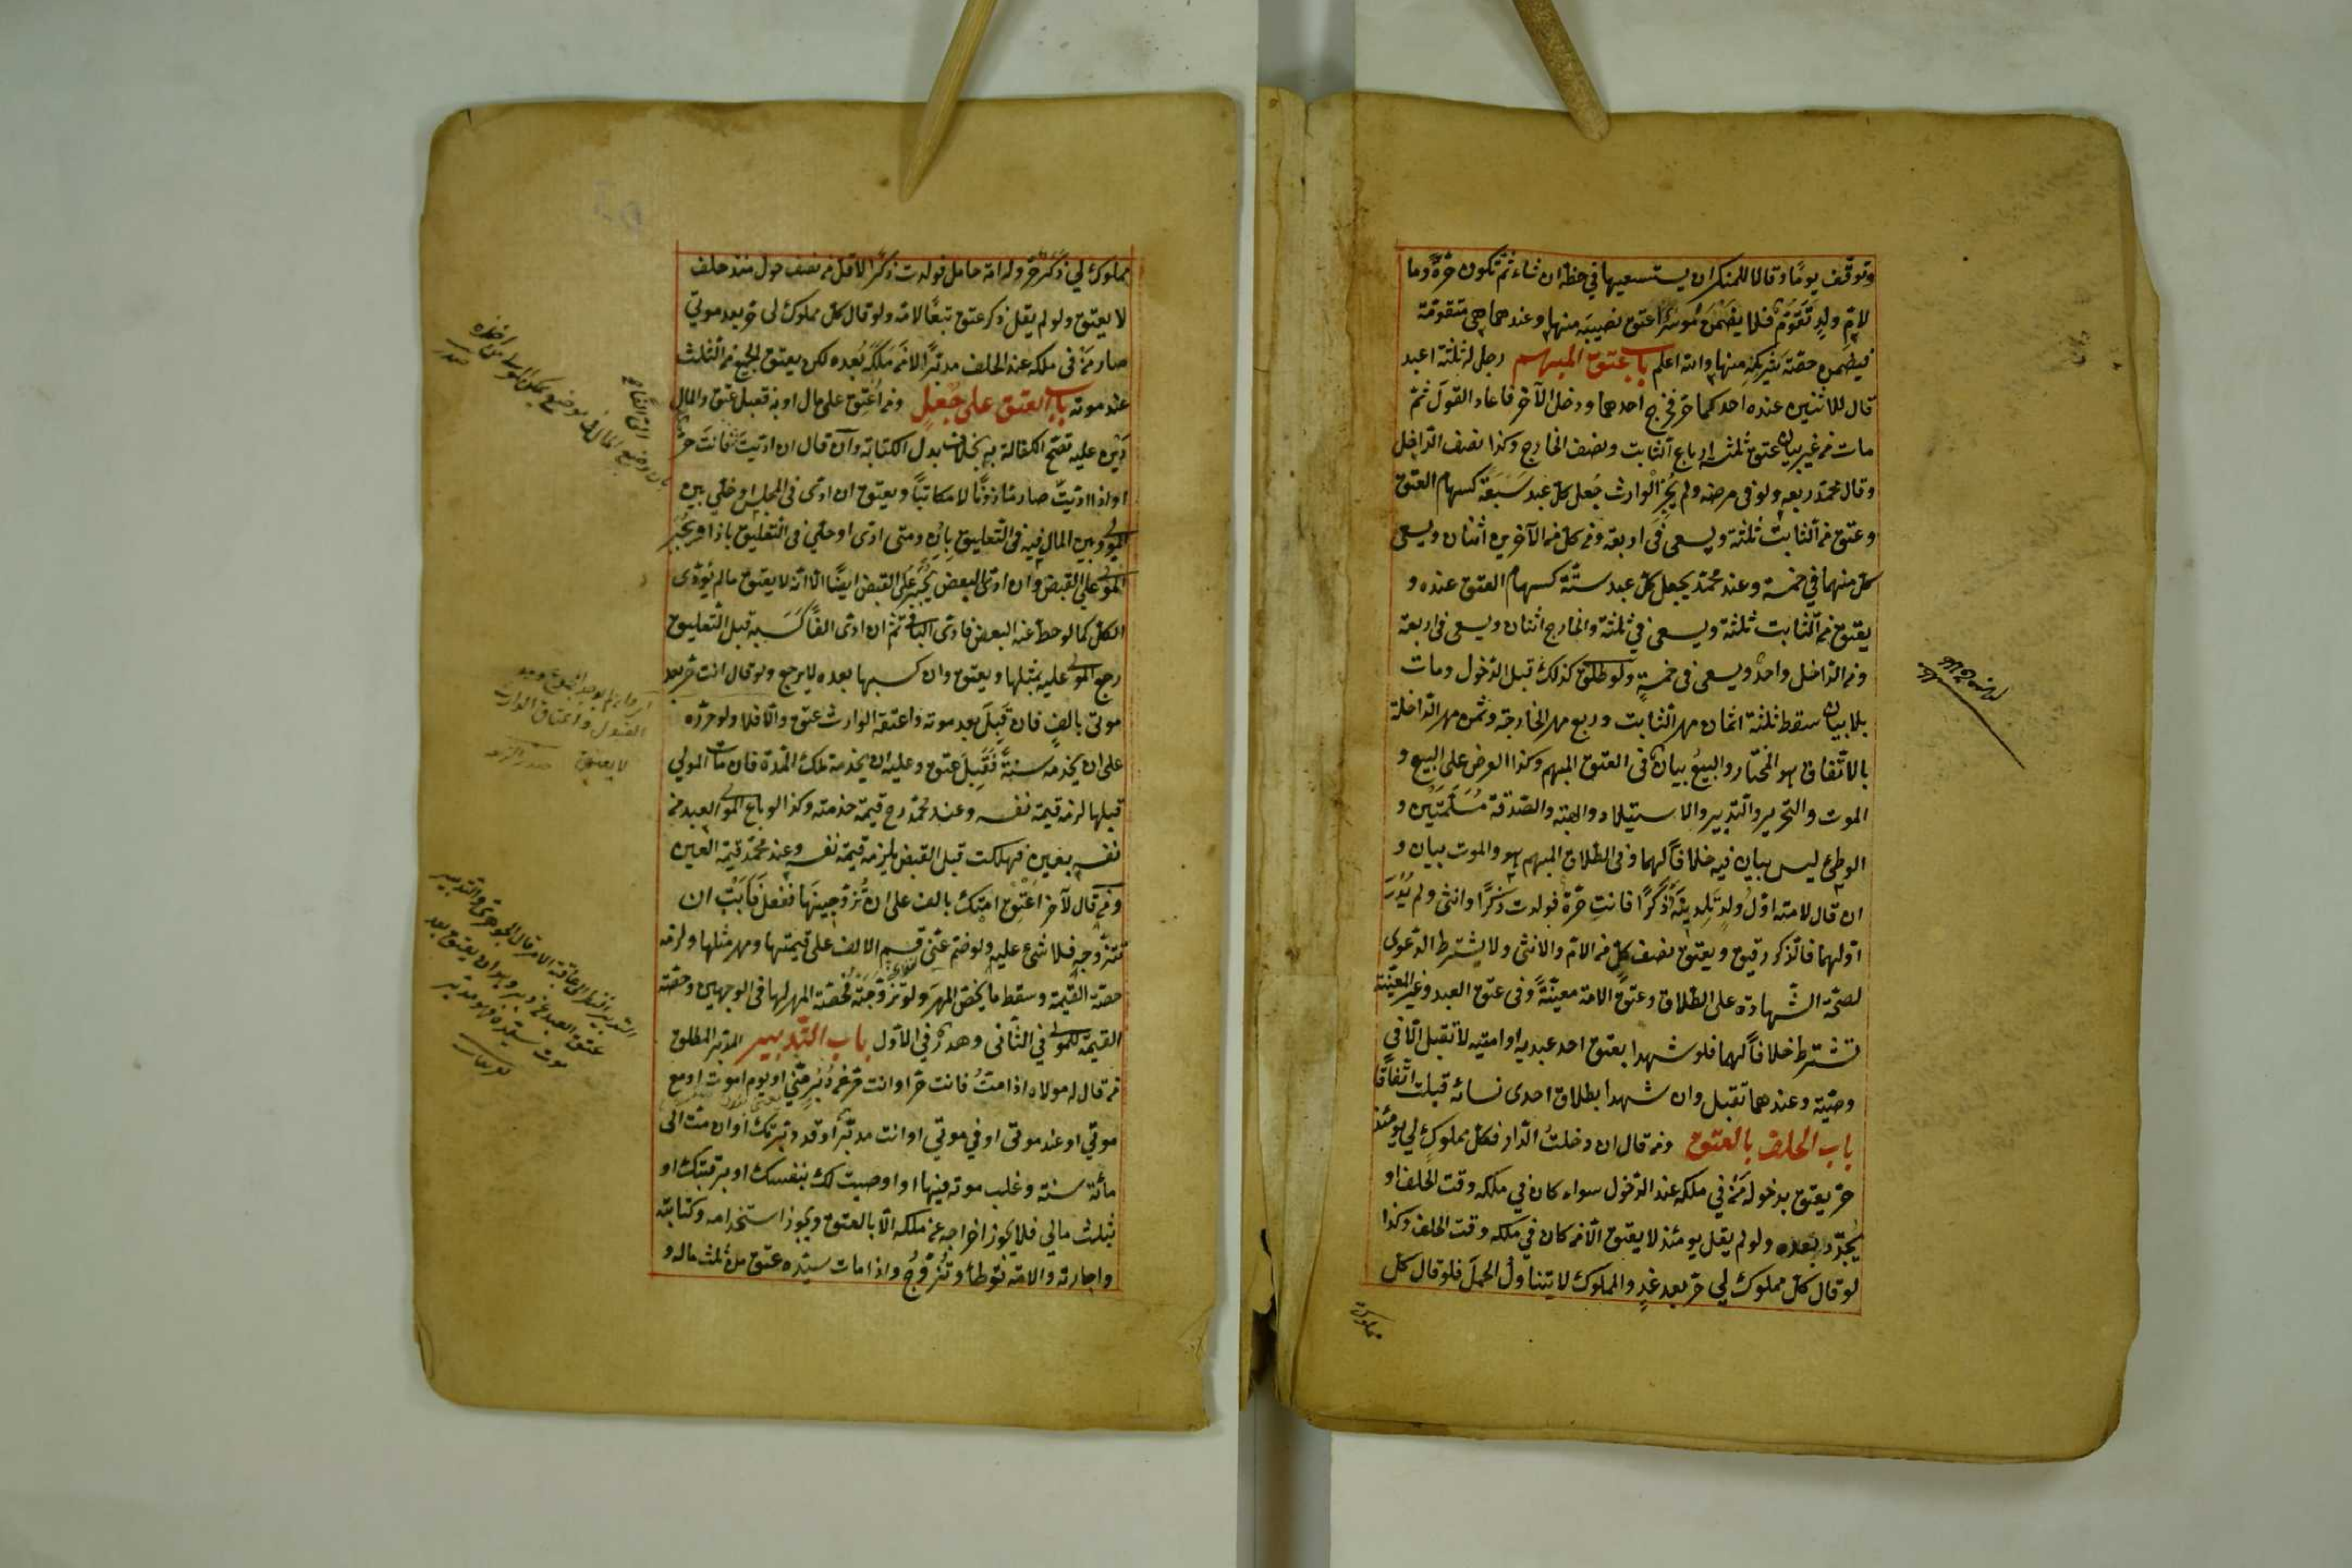 وتوقّف يومًا وقالا للمنكر ان يستسعيها في حظه ان شاء ثمّ تكون حرّةً وما
لامّ ولدٍ تَقَوُّمٌ فلا يضمن مُوسرٌ اعتق نصيبَه منها وعندهما هي متقوّمة
فيضمن حصّة شريكه منها والله اعلم باب عتق المبهم رجل له ثلثة اعبد
قال للاثنين عنده احدكما حرّ فخرج احدهما ودخل الآخر فاعاد القول ثمّ
مات من غير بيان عتق ثلثة ارباع الثّابت ونصف الخارج وكذا نصف الدّاخل
وقال محمّد ربعه ولو في مرضه ولم يُجِزِ الوارث جُعل كلّ عبد سَبعَة كسهام العتق
وعتق من الثّابت ثلثة ويسعى في اربعة ومن كلّ من الآخرين اثنان ويسعى
كلّ منهما في خمسة وعند محمّد يجعل كلّ عبد ستّة كسهام العتق عنده و
يعتق من الثّابت ثلثة ويسعى في ثلثة والخارج اثنان ويسعى في اربعة
ومن الدّاخل واحدٌ ويسعى في خمسةٍ ولو طلّق كذلك قبل الدّخول ومات
بلا بيان سقط ثلثة اثمان مهر الثّابت وربع مهر الخارجة وثمن مهر الدّاخلة
بالاتّفاق هو المختار والبيعُ بيانٌ في العتق المبهم وكذا العرض على البيع و
الموت والتّحرير والتّدبير والاستيلاد والهبة والصّدقة مُسَلَّمَتَيْنِ و
الوطئ ليس ببيان فيه خلافاً لهما وفي الطّلاق المبهم هو والموت بيان و
ان قال لامته اوّلُ ولدٍ تلدينَه ذكرًا فانتِ حرّة فولدت ذكرًا وانثى ولم يُدْرَ
اوّلهما فالذّكر رقيق ويعتق نصف كلٍّ من الامّ والانثى ولا يشترط الدّعوى
لصحّة الشّهادة على الطّلاق وعتق الامة معيّنةً وفي عتق العبد وغير المعيّنة
تشترط خلافاً لهما فلو شهدا بعتق احد عبديه او امتيه لا تقبل الّا في
وصيّة وعندهما تقبل وان شهدا بطلاق احدى نسائه قبلت اتّفاقًا
باب الحلف بالعتق ومن قال ان دخلتُ الدّار فكلّ مملوكٍ لي يومئذ
حرّ يعتق بدخوله مَن في ملكه عند الدّخول سواء كان في ملكه وقت الحلف او
تجدّد بعده ولو لم يقل يومئذ لا يعتق الّا من كان في ملكه وقت الحلف وكذا
لو قال كلّ مملوك لي حرّ بعد غدٍ والمملوك لا يتناول الحمل فلو قال كلّ
مملوك
مملوك لي ذكرٌ حرّ وله امة حامل فولدت ذكرًا لاقلّ من نصف حول منذ حلف
لا يعتق ولو لم يقل ذكر عتق تبعًا لامّه ولو قال كلّ مملوك لي حرّ بعد موتي
صار مَن في ملكه عند الحلف مدبّرًا لا مَن مَلَكَه بعده لكن يعتق الجميع من الثّلث
عند موته باب العتق على جُعلٍ ومن اُعتِق على مال او به فقبل عتق والمال
دين عليه تصحّ الكفالة به بخلاف بدل الكتابة وان قال ان ادّيتَ فانتَ حرّ
او اذا ادّيتَ صار مأذونًا لا مكاتبًا ويعتق ان ادّى في المجلس او خلّى بين
المولى وبين المال فيه في التّعليق بان ومتى ادّى او خلّى في التّعليق باذا ويُجبَر
المولى على القبض وان ادّى البعض يُجبَر على القبض ايضًا الّا انّه لا يعتق ما لم يؤدّى
الكلّ كما لو حطّ عنه البعض فادّى الباقي ثمّ ان ادّى الفًا كَسَبَه قبل التّعليق
رجع المولى عليه بمثلها ويعتق وان كسبها بعده لا يرجع ولو قال انت حرّ بعد
موتي بالفٍ فان قَبِلَ بعد موته واعتقه الوارث عتق والّا فلا ولو حرّره
على ان يخدمه سنةً فَقَبِلَ عتق وعليه ان يخدمه تلك المدّة فان مات المولى
قبلها لزمه قيمة نفسه وعند محمّد رح قيمة خدمته وكذا لو باع المولى العبد من
نفسه بعين فهلكت قبل القبض يلزمه قيمة نفسه وعند محمّد قيمة العين
ومن قال لآخر اعتِق امتك بالف على ان تزوّجينها ففعل فاَبَتْ ان
تتزوّجه فلا شئ عليه ولو ضمّ عنّي قسم الالف على قيمتها ومهر مثلها ولزمه
حصّة القيمة وسقط ما يخصّ المهر ولو تزوّجته فحصّة المهر لها في الوجهين وحصّة
القيمة للمولى في الثّاني وهدر في الاوّل باب التّدبير المدبّر المطلق
من قال له مولاه اذا متُّ فانت حرّ او انت حرّ عن دُبُرٍ منّي او يوم اموت او مع
موتي او عند موتي او في موتي او انت مدبّر او قد دبّرتك او ان متّ الى
مائة سنة وغلب موته فيها او اوصيت لك بنفسك او برقبتك او
بثلث مالي فلا يجوز اخراجه عن ملكه الّا بالعتق ويجوز استخدامه وكتابته
واجارته والامة توطأ وتُزَوَّجُ واذا مات سيّده عتق من ثلث ماله و
القبول واعتاق الوارث
لا يعتق
عتق العبد عن دبر وهو ان يعتق بعد
موت سيّده فهو مدبّر